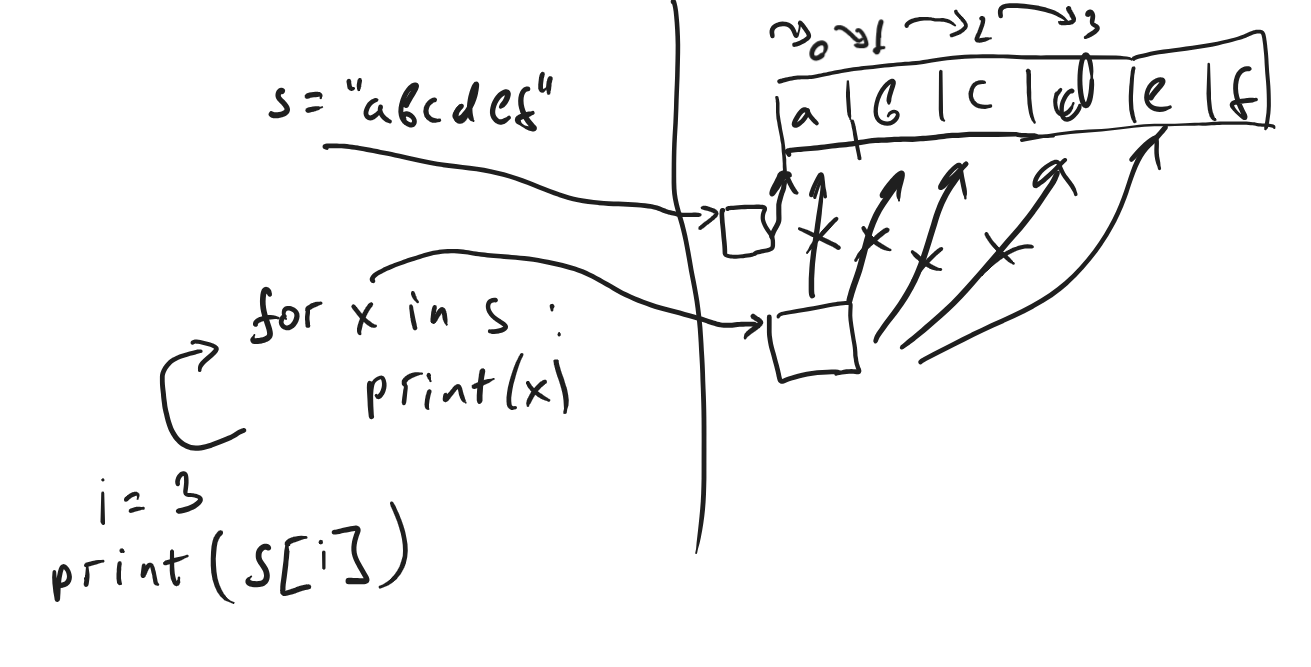 s = "abcdef"
for x in s :
print(x)
i = 3
print(s[i])
0 1 2 3
a | b | c | d | e | f